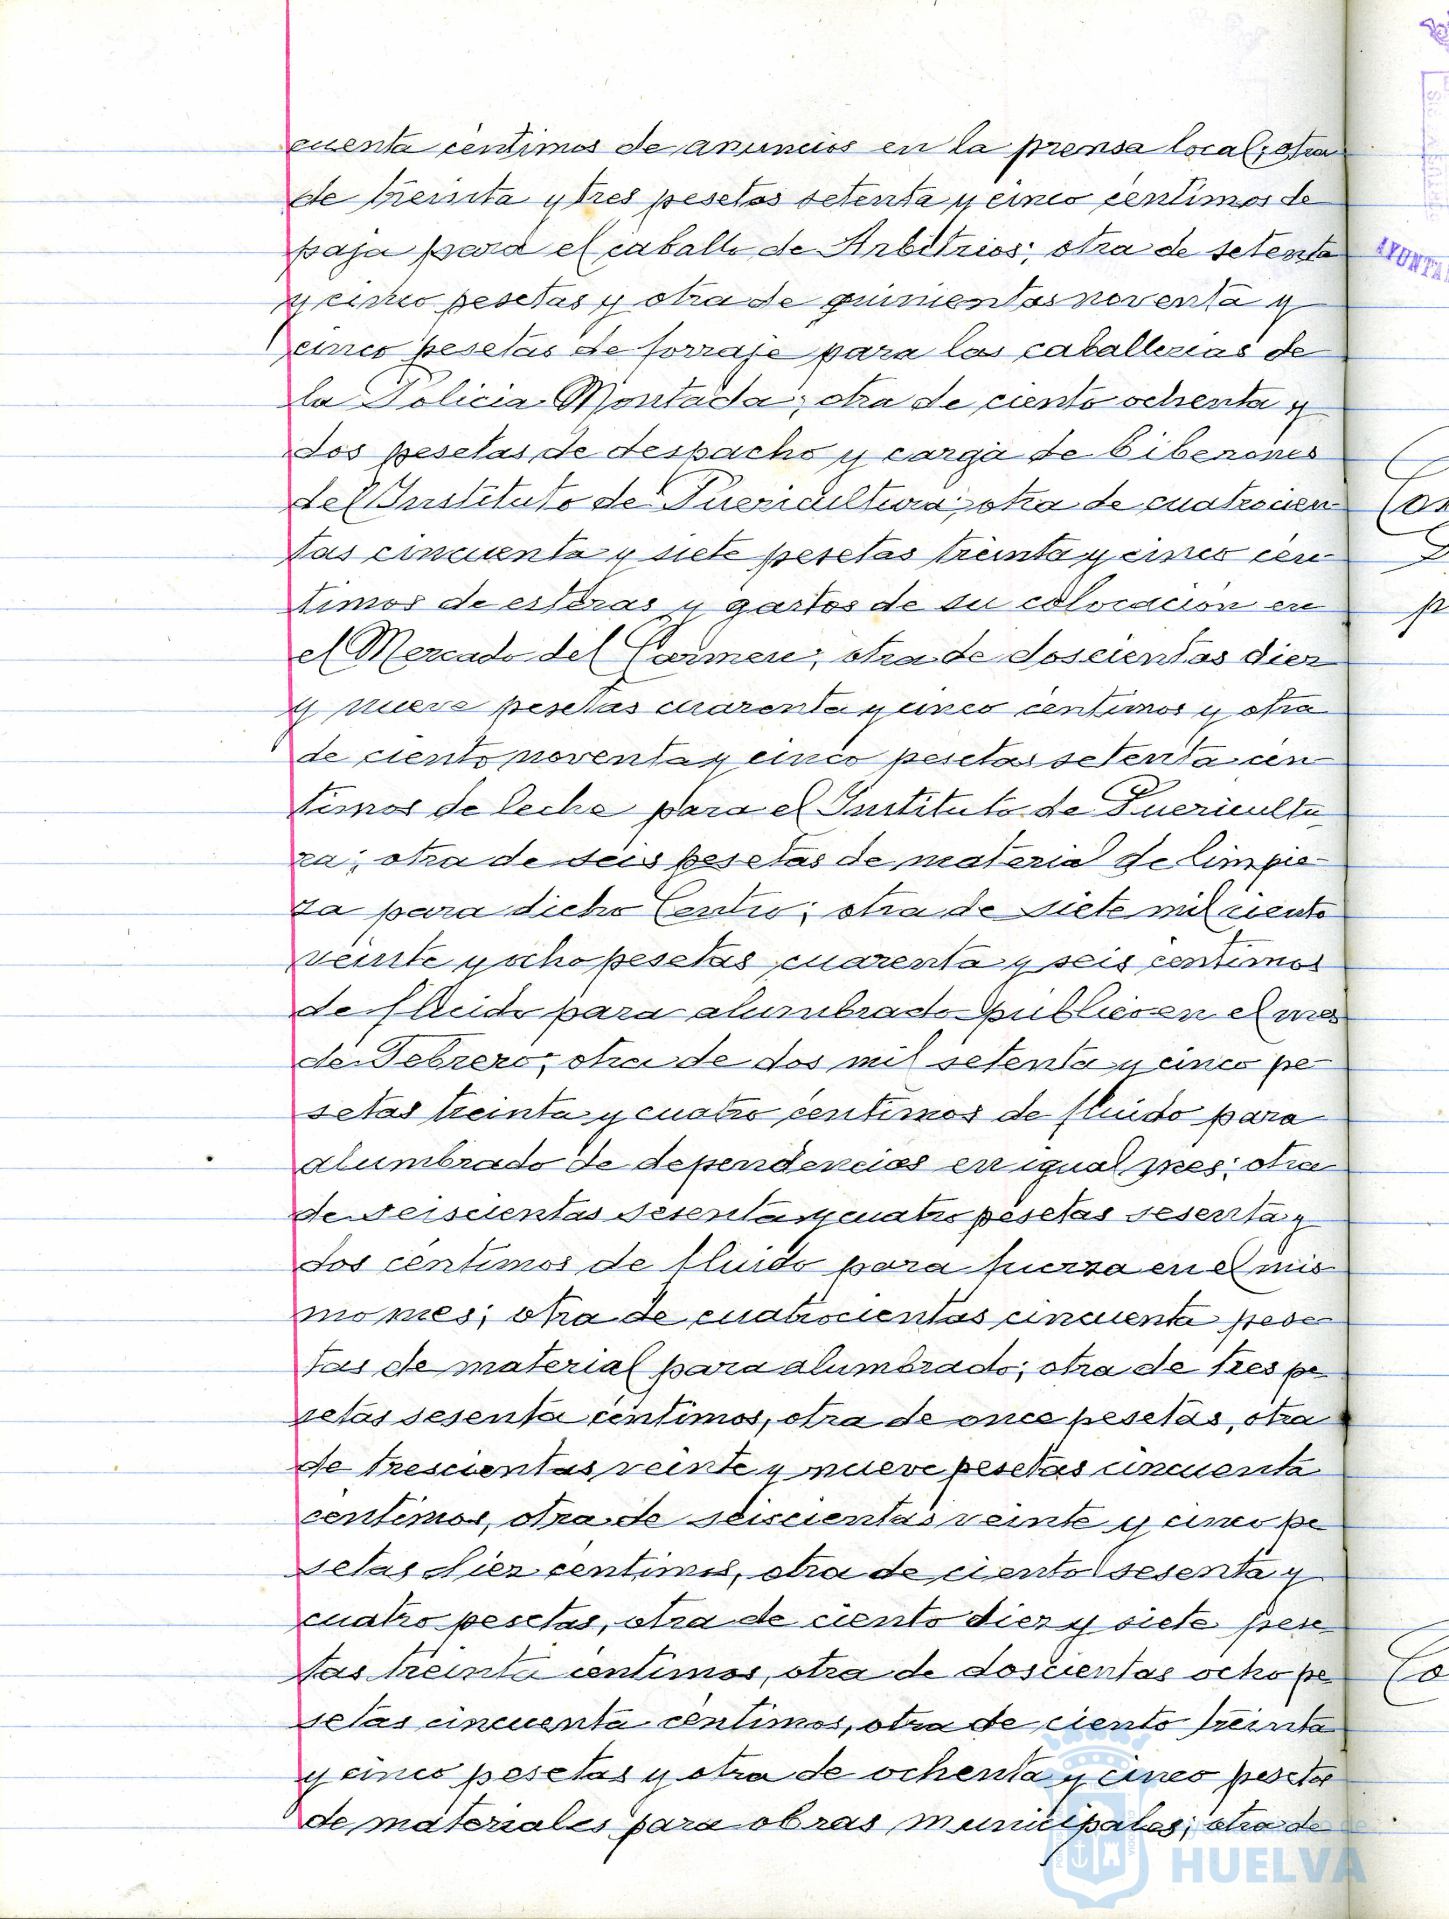 cuenta céntimos de anuncios en la prensa local; otra
de treinta y tres pesetas setenta y cinco céntimos de
paja para el caballo de Arbitrios; otra de setenta
y cinco pesetas y otra de quinientas noventa y
cinco pesetas de forraje para las caballerias de
la Policia Montada; otra de ciento ochenta y
dos pesetas de despacho y carga de biberones
del Instituto de Puericultura; otra de cuatrocien-
tas cincuenta y siete pesetas treinta y cinco cén-
timos de esteras y gastos de su colocación en
el Mercado del Carmen; otra de doscientas diez
y nueve pesetas cuarenta y cinco céntimos y otra
de ciento noventa y cinco pesetas setenta cén
timos de leche para el Instituto de Puericultu-
ra; otra de seis pesetas de material de limpie-
za para dicho Centro; otra de siete mil ciento
veinte y ocho pesetas cuarenta y seis céntimos
de fluido para alumbrado público en el mes
de Febrero; otra de dos mil setenta y cinco pe-
setas treinta y cuatro céntimos de fluido para
alumbrado de dependencias en igual mes; otra
de seiscientas sesenta y cuatro pesetas sesenta y
dos céntimos de fluido para fuerza en el mis-
mo mes; otra de cuatrocientas cincuenta pese-
tas de material para alumbrado; otra de tres pe
setas sesenta céntimos, otra de once pesetas, otra
de trescientas veinte y nueve pesetas cincuenta
céntimos, otra de seiscientas veinte y cinco pe
setas diez céntimos, otra de ciento sesenta y
cuatro pesetas, otra de ciento diez y siete pese-
tas treinta céntimos, otra de doscientas ocho pe
setas cincuenta céntimos, otra de ciento treinta
y cinco pesetas y otra de ochenta y cinco pesetas
de materiales para obras municipales; otra de
HUELVA
AYUNTA